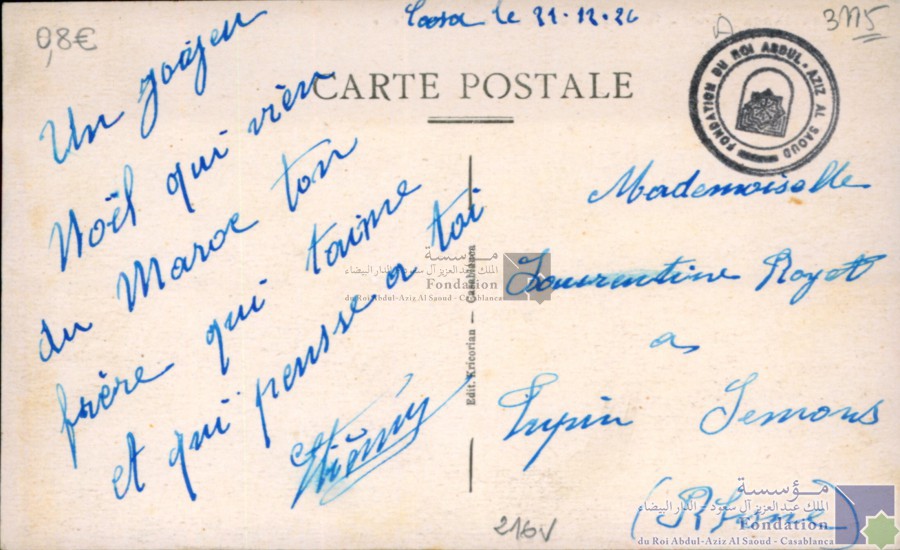 0,8€
Casa le 21.12.26
3115
CARTE POSTALE
FONDATION DU ROI ABDUL-AZIZ AL SAOUD
Un joájeu
Noël qui vien
du Maroc ton
frère qui taime
et qui pensse a toi
Mademoiselle
Laurentine Royet
a
Lupin Semons
(Rhône)
Edit. Kricorian — Casablanca
216V
الملك عبد العزيز آل سعود - الدار البيضاء
Fondation
du Roi Abdul-Aziz Al Saoud - Casablanca
مؤسسة
الملك عبد العزيز آل سعود - الدار البيضاء
Fondation
du Roi Abdul-Aziz Al Saoud - Casablanca